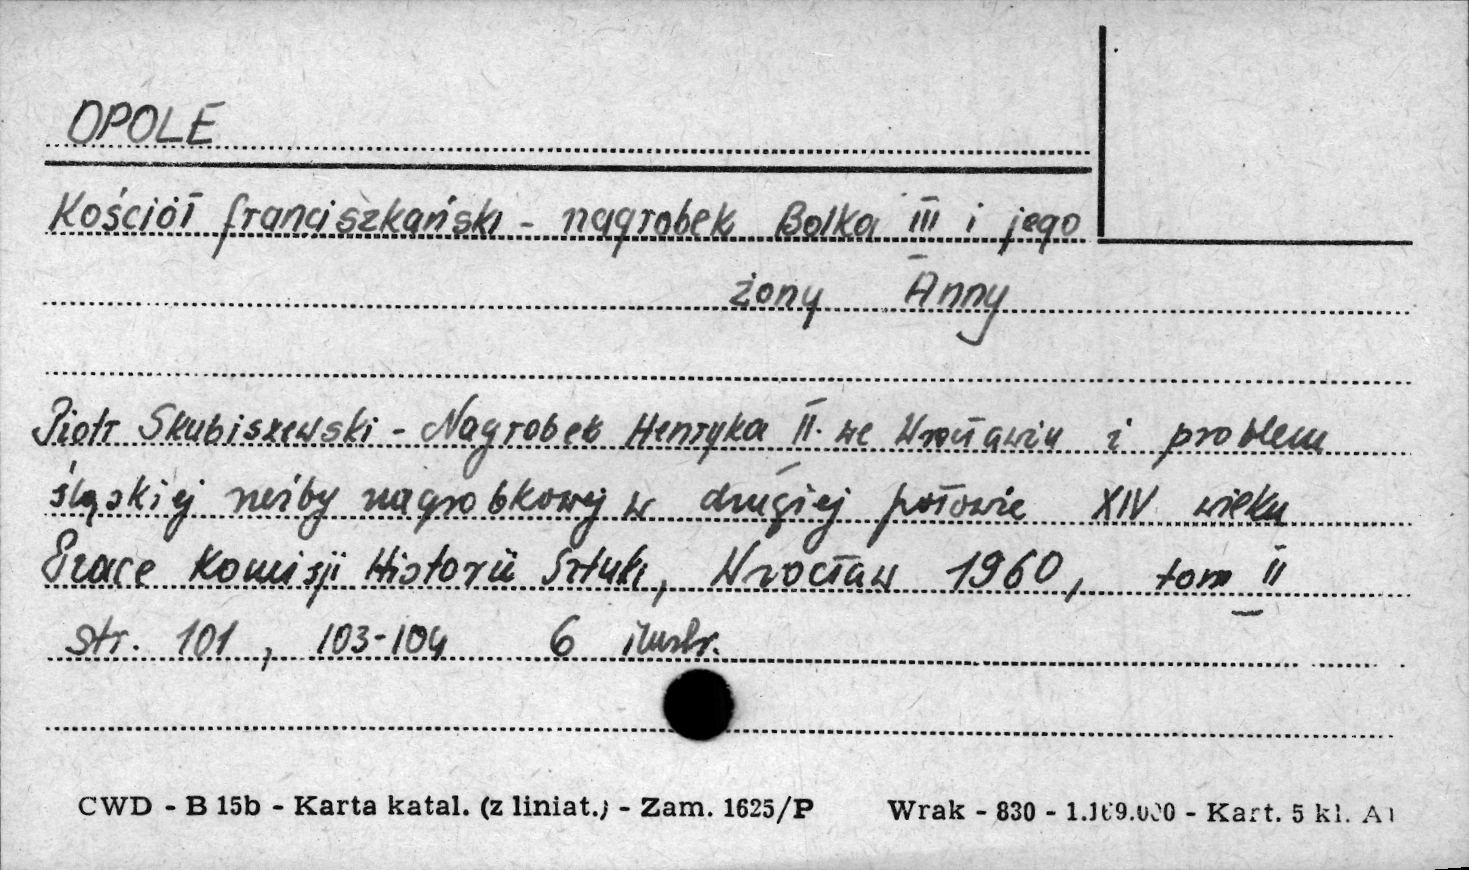 OPOLE
Kościół franciszkański - nagrobek Bolka III i jego
żony Anny
Piotr Skubiszewski - Nagrobek Henryka II. we Wrocławiu i problem
śląskiej rzeźby nagrobkowej w drugiej połowie XIV wieku
Prace Komisji Historii Sztuki, Wrocław 1960, tom II
str. 101, 103-104 6 ilustr.
CWD - B 15b - Karta katal. (z liniat.) - Zam. 1625/P Wrak - 830 - 1.169.000 - Kart. 5 kl. A1